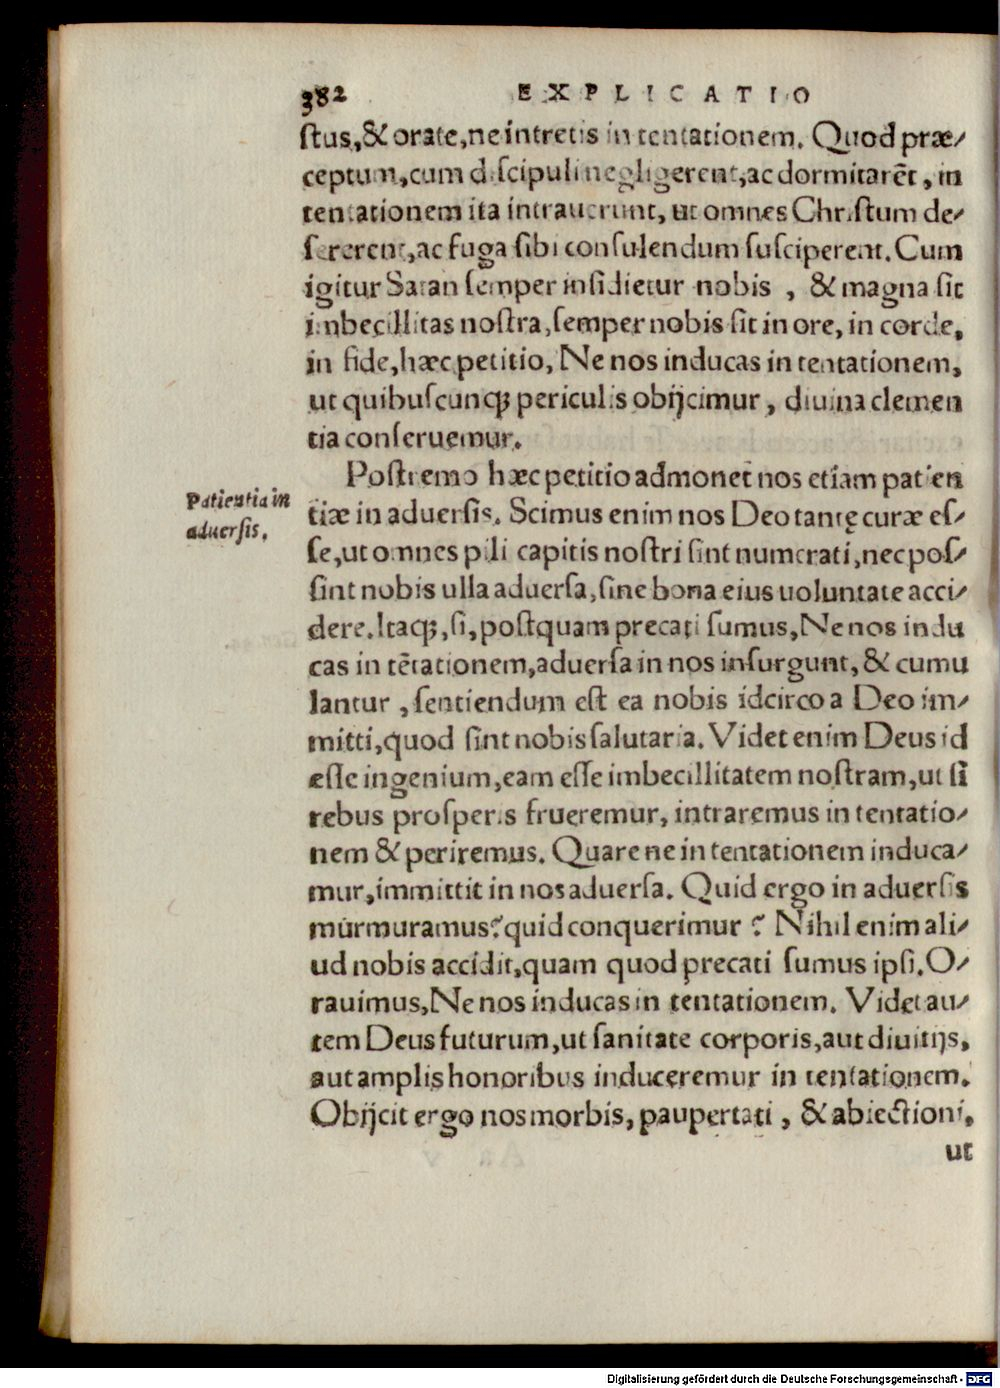 382 EXPLICATIO
ſtus, & orate, ne intretis in tentationem. Quod præ⸗
ceptum, cum diſcipuli negligerent, ac dormitarēt, in
tentationem ita intrauerunt, ut omnes Chriſtum de⸗
ſererent, ac fuga ſibi conſulendum ſuſciperent. Cum
igitur Satan ſemper inſidietur nobis , & magna ſit
imbecillitas noſtra, ſemper nobis ſit in ore, in corde,
in fide, hæc petitio, Ne nos inducas in tentationem,
ut quibuſcunqꝫ periculis obijcimur, diuina clemen
tia conſeruemur.
Poſtremo hæc petitio admonet nos etiam patien
Patientia in
aduerſis.
tiæ in aduerſis. Scimus enim nos Deo tantę curæ eſ⸗
ſe, ut omnes pili capitis noſtri ſint numerati, nec poſ⸗
ſint nobis ulla aduerſa, ſine bona eius uoluntate acci⸗
dere. Itaqꝫ, ſi, poſtquam precati ſumus, Ne nos indu
cas in tētationem, aduerſa in nos inſurgunt, & cumu
lantur , ſentiendum eſt ea nobis idcirco a Deo im⸗
mitti, quod ſint nobis ſalutaria. Videt enim Deus id
eſſe ingenium, eam eſſe imbecillitatem noſtram, ut ſi
rebus proſperis frueremur, intraremus in tentatio⸗
nem & periremus. Quare ne in tentationem induca⸗
mur, immittit in nos aduerſa. Quid ergo in aduerſis
murmuramus? quid conquerimur ? Nihil enim ali⸗
ud nobis accidit, quam quod precati ſumus ipſi. O⸗
rauimus, Ne nos inducas in tentationem. Videt au⸗
tem Deus futurum, ut ſanitate corporis, aut diuitijs,
aut amplis honoribus induceremur in tentationem.
Obijcit ergo nos morbis, paupertati , & abiectioni,
ut
Digitalisierung gefördert durch die Deutsche Forschungsgemeinschaft - DFG